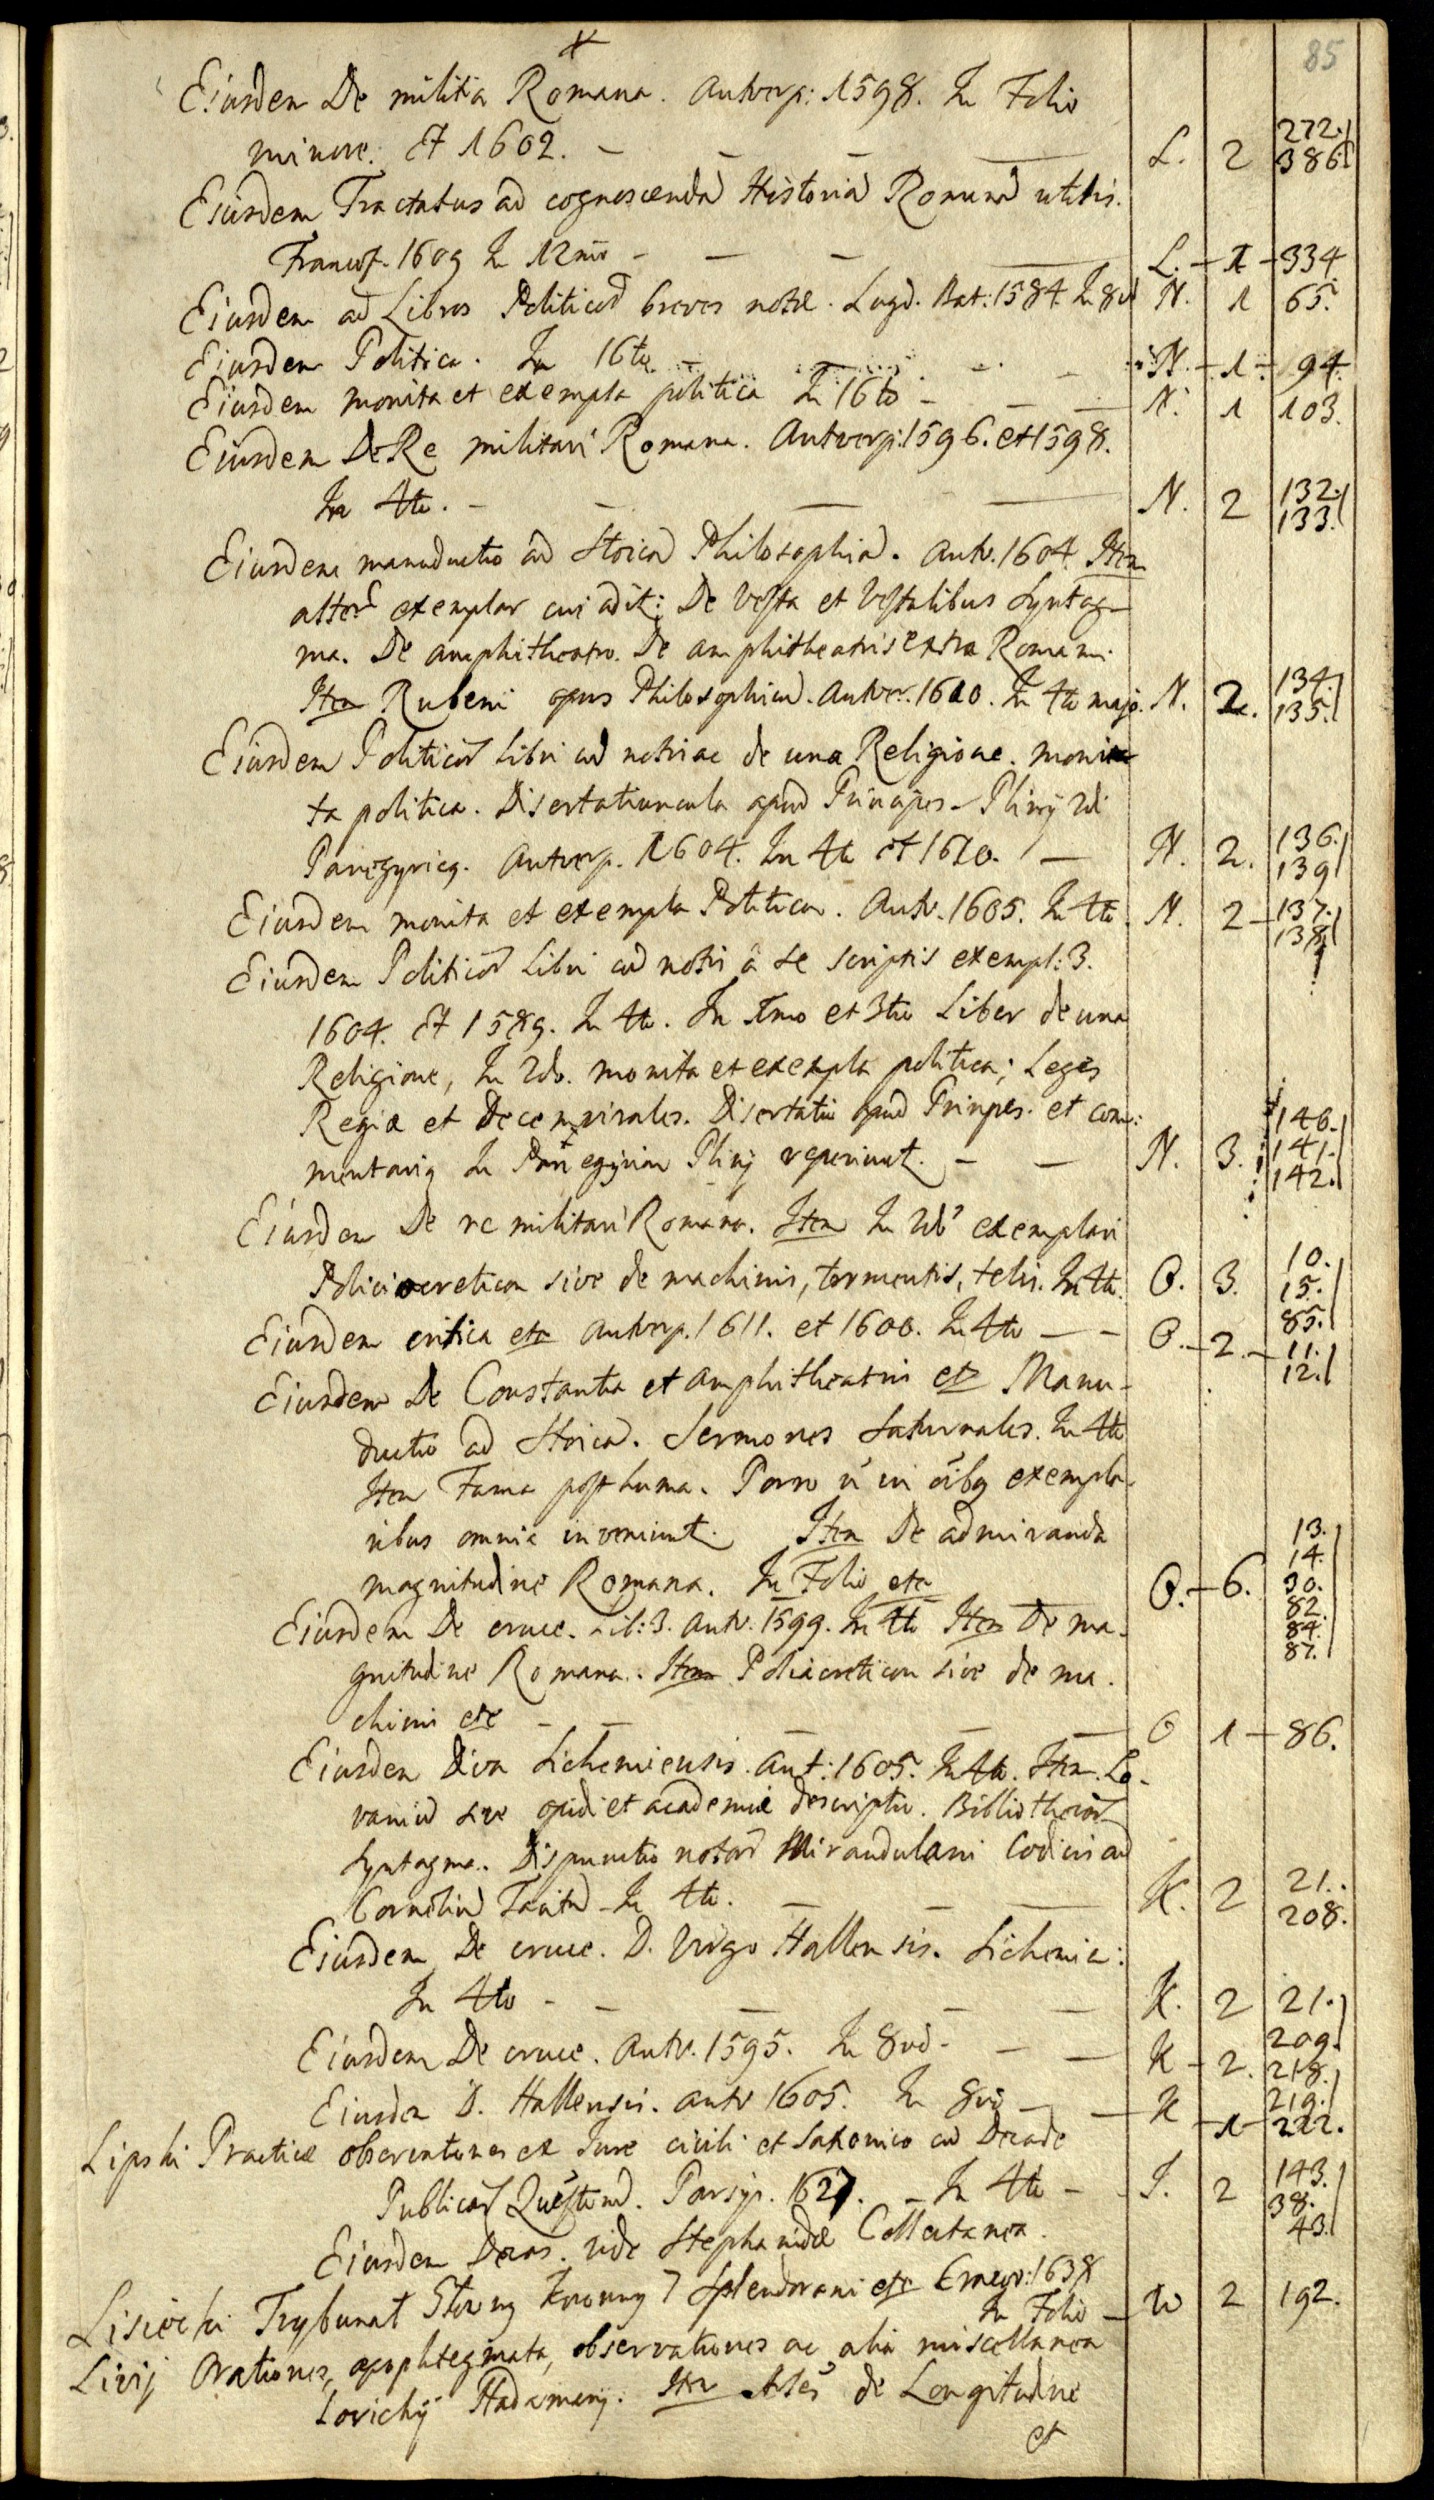 85
Eiusdem De militia Romana. Antverp: 1598. In Folio
minore. Et 1602. — L. 2 272. 386.
Eiusdem Tractatus ad cognoscendā Historiā Romanā utilis.
Francof. 1609 In 12mo — L. 1 334.
Eiusdem ad Libros Politicoȓ breves notæ. Lugd. Bat: 1584. In 8vo N. 1 65.
Eiusdem Politica. In 16to — N. 1 94.
Eiusdem monita et exempla politica In 16to — N. 1 103.
Eiusdem De Re militari Romana. Antverp: 1596. et 1598.
In 4to. — N. 2 132. 133.
Eiusdem manuductio ad Stoicā Philosophiā. Antv. 1604. Item
alterū exemplar cui adit: De Vesta et Vestalibus Syntag-
ma. De amphitheatro. De amphitheatris extra Romam.
Item Rubeni opus Philosophicū. Antver. 1610. In 4to majo. N. 2. 134. 135.
Eiusdem Politicoȓ Libri cū notis ac de una Religione. moni-
ta politica. Disertatiuncula apud Principes. Plinij 2di
Panegyricq. Antverp. 1604. In 4to et 1610. — N. 2. 136. 139
Eiusdem monita et exempla Politica. Antv. 1605. In 4to. N. 2 137. 138.
Eiusdem Politicoȓ Libri cū notis à se scriptis exempl: 3.
1604. Et 1589. In 4to. In 1mo et 3tio Liber de una
Religione, In 2do. monita et exempla politica; Leges
Regiæ et Decemvirales. Disertatio apud Prinpes. et com:
mentariq In Panegyrim Plinij reperiunt. — N. 3. 140. 141. 142.
Eiusdem De re militari Romana. Item In 2do exemplari
Poliocreticon sive de machinis, tormentis, telis. In 4to. O. 3. 10. 15. 85.
Eiusdem critica etc Antverp. 1611. et 1600. In 4to — O. 2. 11. 12.
Eiusdem De Constantia et amphitheatris etc Manu-
ductio ad Stoicā. Sermones Saturnales. In 4to
Item Fama posthuma. Porro ñ in oibq exempla-
ribus omnia inveniunt. Item De admiranda
magnitudine Romana. In Folio etc O. 6. 13. 14. 30. 82. 84. 87.
Eiusdem De cruce. Lib: 3. Antv. 1599. In 4to Item De ma-
gnitudine Romana. Item Poliocreticon sive de ma-
chinis etc — O 1 86.
Eiusdem Diva Sichemiensis. Ant: 1605. In 4to. Item. Lo-
vaniū sive opidi et academiæ descriptio. Bibliothecaȓ
Syntagma. Dispunctio notaȓ Mirandulani Codicis ad
Corneliū Tacitū In 4to. — K. 2 21. 208.
Eiusdem De cruce. D. Virgo Hallensis. Sichemie:
In 4to — K. 2 21. 209.
Eiusdem De cruce. Antv. 1595. In 8vo. — K 2. 218. 219.
Eiusdem D. Hallensis. Antv 1605. In 8vo — K 1 222.
Lipski Practicæ observationes ex Jure civili et Saxonico cū Decade
Publicaȓ Quæstionū. Parsyp. 1627. In 4to — J. 2 143. 38. 43.
Eiusdem Decas. vide Stephanidæ Collectanea.
Lisiecki Trybunał Głowny Koronny 7 Splendorami etc Cracov: 1638
In Folio — W 2 192.
Livij Orationes, apophtegmata, observationes ac alia miscellanea
Lorichij Hadamarij. Item de Longitudine
et